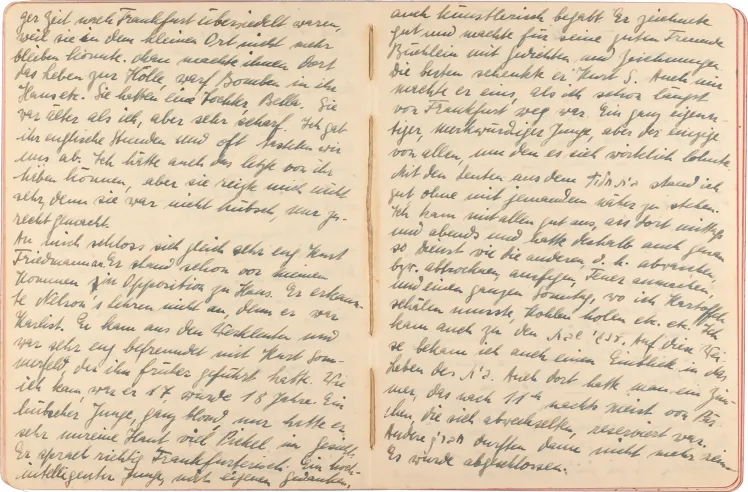 ger Zeit nach Frankfurt übersiedelt waren,
weil sie in dem kleinen Ort nicht mehr
bleiben konnte. Man machte ihnen dort
das Leben zur Hölle, warf Bomben in ihr
Haus etc. Sie hatten eine Tochter, Bella. Sie
war älter als ich, aber sehr scharf. Ich gab
ihr englische Stunden und oft tasteten wir
uns ab. Ich hätte auch das letzte von ihr
haben können, aber sie reizte mich nicht
sehr, denn sie war nicht hübsch, nur
recht gemacht.
An mich schloss sich gleich sehr eng Kurt
Friedmann an. Er stand schon vor meinem
Kommen in Opposition zu Hans. Er erkann-
te Nelson's Lehren nicht an, denn er war
Marxist. Er kam aus den Werkleuten und
war sehr eng befreundet mit Kurt Som-
merfeld, der ihn früher geführt hatte. Wie
ich kam, war er 17, wurde 18 Jahre. Ein
hübscher Junge, ganz blond, nur hatte er
sehr unreine Haut, viel Pickel im Gesicht.
Er sprach richtig Frankfurterisch. Ein hoch-
intelligenter Junge, mit eigenen Gedanken,
auch künstlerisch begabt. Er zeichnete
gut und machte für seine guten Freunde
Büchlein mit Gedichten und Zeichnungen.
Die besten schenkte er Kurt S. Auch mir
machte er eins, als ich schon längst
von Frankfurt weg war. Ein ganz eigenar-
tiger merkwürdiger Junge, aber der einzige
von allen, um den es sich wirklich lohnte.
Mit den Leuten aus dem stand ich
gut ohne mit jemandem näher zu stehen.
Ich kam mit allen gut aus, ass dort mittags
und abends und hatte deshalb auch genau
so Dienst wie die anderen, d. h. abwaschen,
bzw. abtrocknen, ausfegen, Feuer anmachen,
und einen ganzen Sonntag, wo ich Kartoffeln
schälen musste, Kohlen holen etc. etc. Ich
kam auch zu den Auf diese Wei-
se bekam ich auch einen Einblick in das
Leben des Auch dort hatte man ein Zim-
mer, das nach 11 nachts meist von Pär-
chen, die sich abwechselten, reserviert war.
Andere durften dann nicht mehr rein.
Es wurde abgeschlossen.